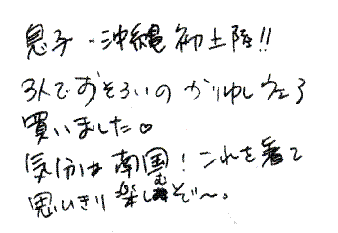 息子・沖縄初上陸!!
3人でおそろいのかりゆしウェア
買いました♡
気分は南国!これを着て
思いきり楽しむぞ〜。